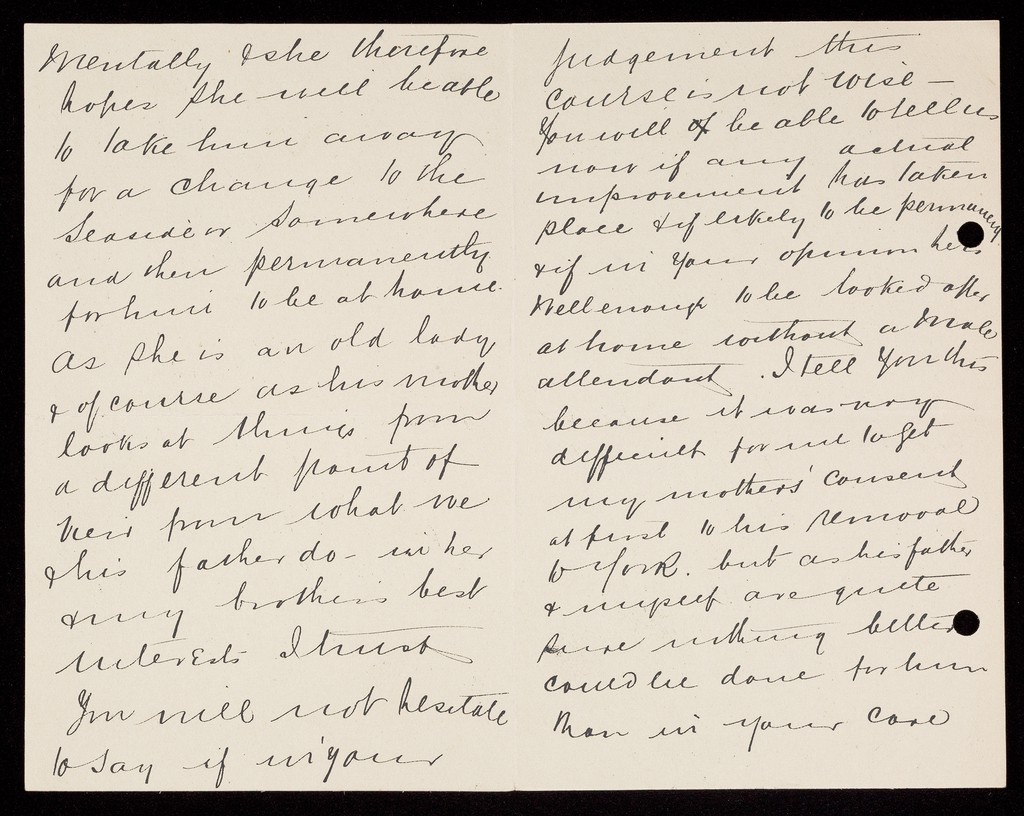 mentally & she therefore
hopes she will be able
to take him away
for a change to the
seaside or somewhere
and then permanently
for him to be at home.
As she is an old lady
& of course as his mother
looks at things from
a different point of
veiw from what we
& his father do - in her
& my brothers best
interests I trust
You will not hesitate
to say if in your
judgement this
course is not wise -
You will be able to tell us
now if any actual
improvement has taken
place & if likely to be permanency
& if in your opinion he is
well enough to be looked after
at home without a male
attendant. I tell you this
because it was very
difficult for me to get
my mothers' consent
at first to his removal
to York. but as his father
& myself are quite
sure nothing better
could be done for him
than in your care